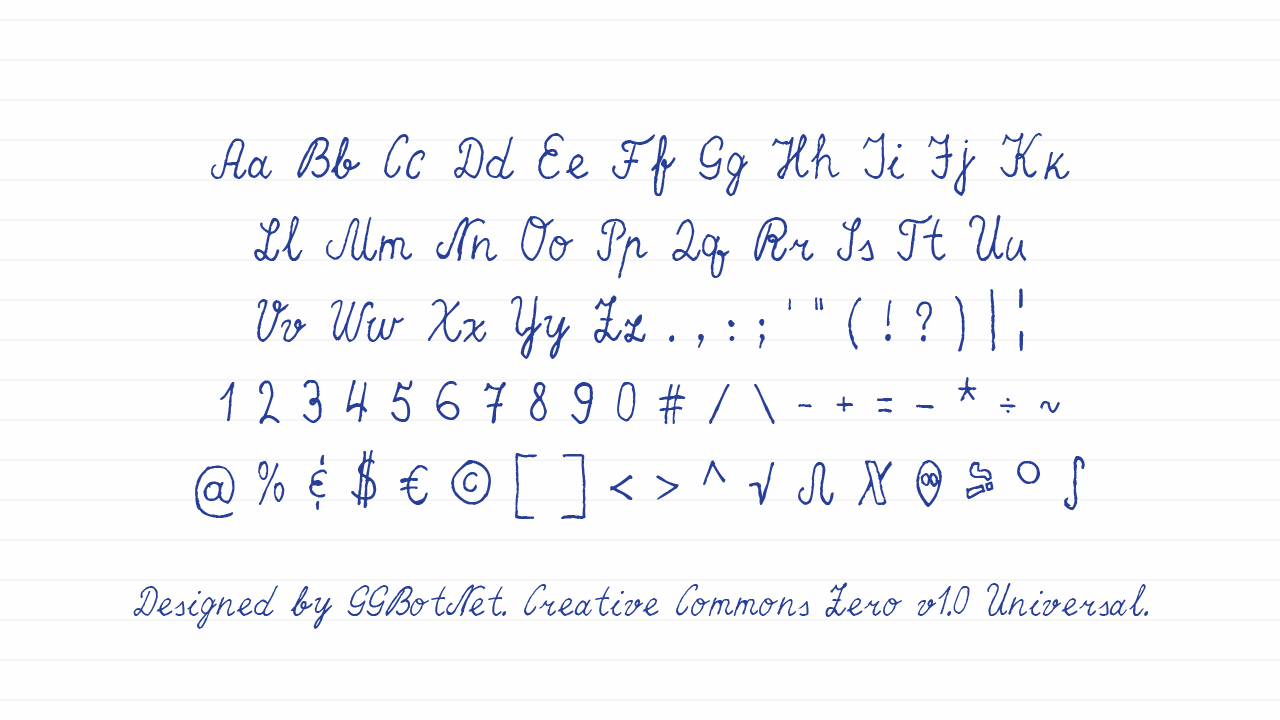 Aa Bb Cc Dd Ee Ff Gg Hh Ii Jj Kk
Ll Mm Nn Oo Pp Qq Rr Ss Tt Uu
Vv Ww Xx Yy Zz . , : ; ' " ( ! ? ) | ¦
1 2 3 4 5 6 7 8 9 0 # / \ - + = – * ÷ ~
@ % & $ € © [ ] < > ^ √ ° ∫
Designed by GGBotNet. Creative Commons Zero v1.0 Universal.